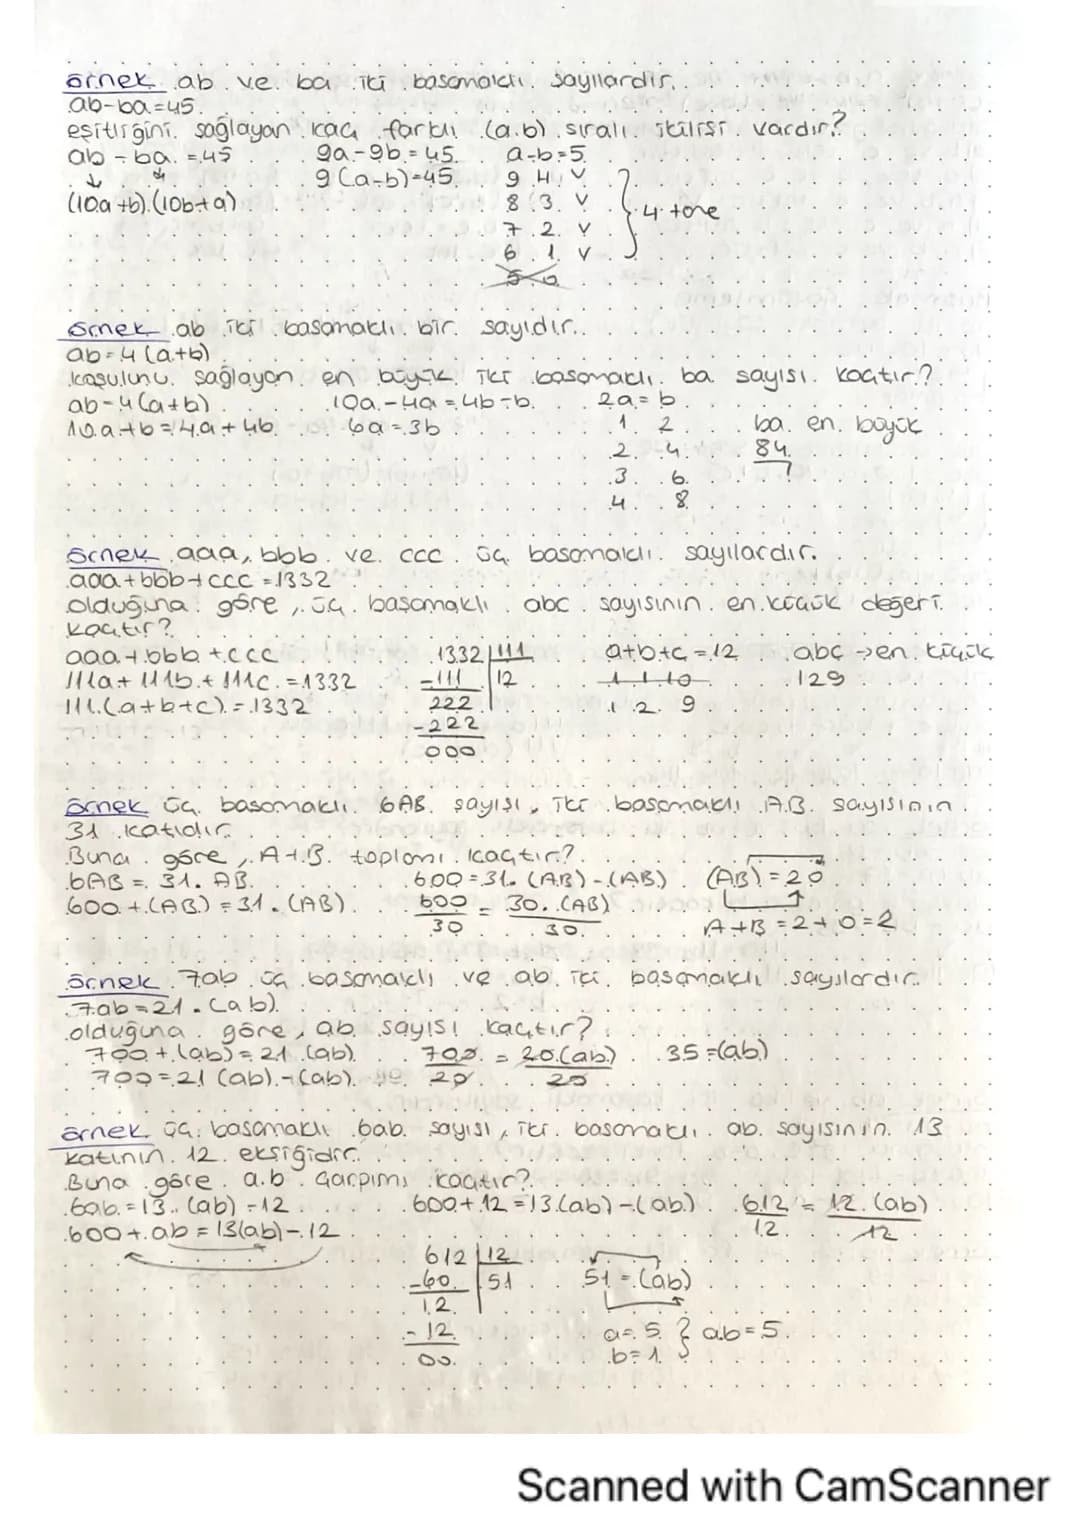 örnek ab ve ba iki basamaklı sayılardır.
ab-ba=45
eşitliğini sağlayan kaç farklı (a.b) sıralı ikilisi vardır?
ab - ba = 45 9a-9b=45 a-b=5
9(a-b)=45 9 4 v
(10a+b).(10b+a) 8 3 v
7 2 v } 4 tane
6 1 v
5 0
örnek ab iki basamaklı bir sayıdır.
ab=4(a+b)
koşulunu sağlayan en büyük iki basamaklı ba sayısı kaçtır?
ab-4(a+b) 10a-4a=4b-b 2a=b
10a+b=4a+4b 6a=3b 1 2 ba en büyük
2 4 84
3 6
4 8
örnek aaa, bbb ve ccc üç basamaklı sayılardır.
aaa+bbb+ccc=1332
olduğuna göre, üç basamaklı abc sayısının en küçük değeri
kaçtır?
aaa+bbb+ccc 1332 | 111 a+b+c=12 abc → en küçük
111a+111b+111c=1332 -111 | 12 1 1 10 129
111.(a+b+c)=1332 222 1 2 9
-222
000
örnek üç basamaklı 6AB sayısı, iki basamaklı AB sayısının
31 katıdır.
Buna göre, A+B toplamı kaçtır?
6AB = 31. AB 600=31.(AB)-(AB) (AB)=20
600+(AB)=31.(AB) 600/30 = 30.(AB)/30 A+B=2+0=2
örnek 7ab üç basamaklı ve ab iki basamaklı sayılardır.
7ab=21.(ab)
olduğuna göre, ab sayısı kaçtır?
700+(ab)=21.(ab) 700/20 = 20.(ab)/20 35=(ab)
700=21(ab)-(ab)
örnek üç basamaklı 6ab sayısı, iki basamaklı ab sayısının 13
katının 12 eksiğidir.
Buna göre a.b çarpımı kaçtır?
6ab=13.(ab)-12 600+12=13.(ab)-(ab) 612/12 = 12.(ab)/12
600+ab=13(ab)-12
612 | 12
-60 | 51 51=(ab)
12
-12 a=5 } a.b=5
00 b=1
Scanned with CamScanner